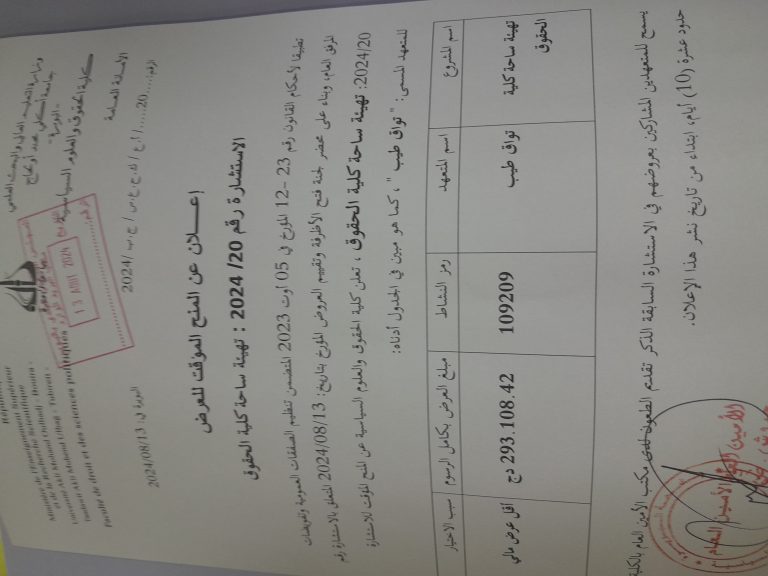 وزارة التعليم العالي والبحث العلمي
جامعة أكلي محند أولحاج
- البويرة -
كلية الحقوق والعلوم السياسية
الأمانة العامة
الرقم:
2024/
Ministère de l'Enseignement Supérieur
et de la Recherche Scientifique
Université Akli Mohand Oulhadj - Bouira -
Faculté de droit et des sciences politiques
13 AOUT 2024
البويرة في: 2024/08/13
إعــلان عن المنح المؤقت للعرض
الاستشارة رقم 20/ 2024 : تهيئة ساحة كلية الحقوق
تطبيقا لأحكام القانون رقم 23 -12 المؤرخ في 05 أوت 2023 المتضمن تنظيم الصفقات العمومية وتفويضات
المرفق العام، وبناء على محضر لجنة فتح الأظرفة وتقييم العروض المؤرخ بتاريخ: 2024/08/13 المتعلق بالاستشارة رقم
2024/20: تهيئة ساحة كلية الحقوق ، تعلن كلية الحقوق والعلوم السياسية عن المنح المؤقت للاستشارة
للمتعهد المسمى: " تواق طيب " ، كما هو مبين في الجدول أدناه:
اسم المشروع اسم المتعهد رمز النشاط مبلغ العرض بكامل الرسوم سبب الاختيار
تهيئة ساحة كلية الحقوق تواق طيب 109209 293.108.42 دج أقل عرض مالي
يسمح للمتعهدين المشاركين بعروضهم في الاستشارة السابقة الذكر تقديم الطعون لدى مكتب الأمين العام بالكلية
حدود عشرة (10) أيام، ابتداء من تاريخ نشر هذا الإعلان.
الأمين العام